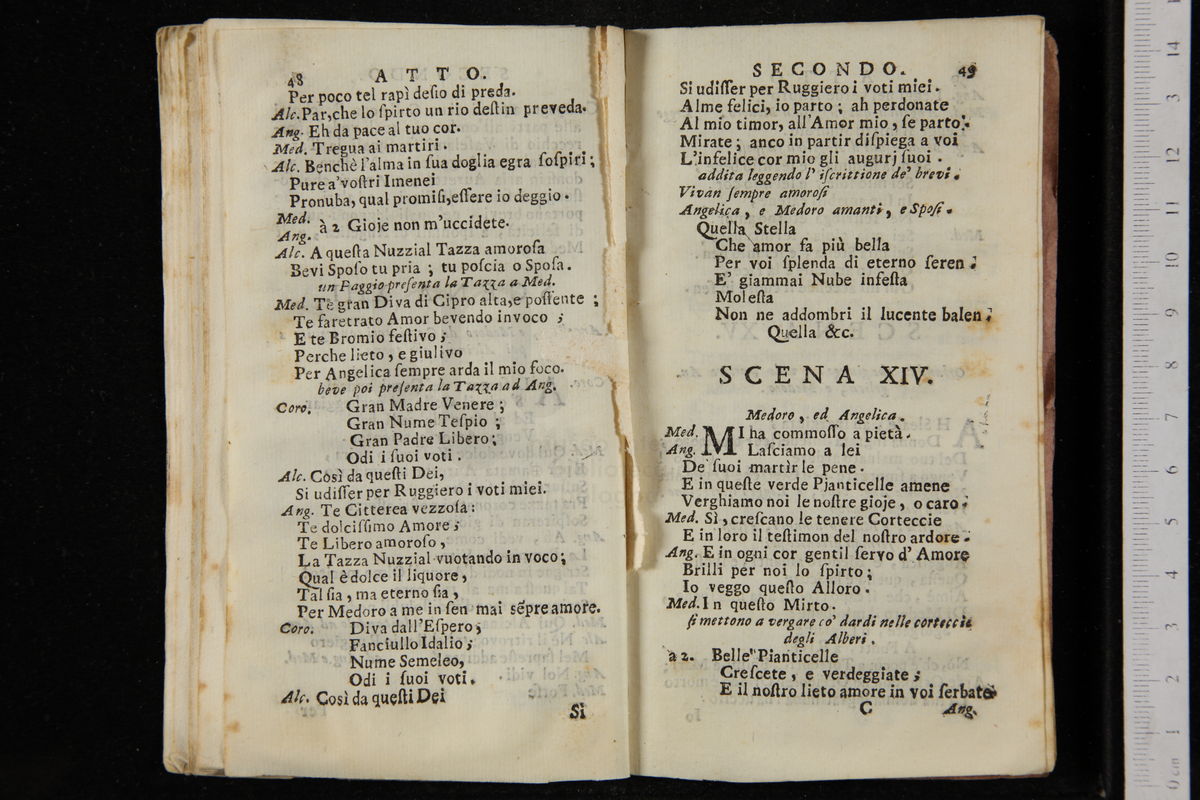 48 ATTO.
Per poco tel rapì deſio di preda.
Alc. Par, che lo ſpirto un rio deſtin preveda.
Ang. Eh da pace al tuo cor.
Med. Tregua ai martiri.
Alc. Benchè l'alma in ſua doglia egra ſoſpiri;
Pure a'voſtri Imenei
Pronuba, qual promiſi, eſſere io deggio.
Med.
Ang. à 2 Gioje non m'uccidete.
Alc. A queſta Nuzzial Tazza amoroſa
Bevi Spoſo tu pria; tu poſcia o Spoſa.
un Paggio preſenta la Tazza a Med.
Med. Te gran Diva di Cipro alta, e poſſente;
Te faretrato Amor bevendo invoco;
E te Bromio feſtivo;
Perche lieto, e giulivo
Per Angelica ſempre arda il mio foco.
beve poi preſenta la Tazza ad Ang.
Coro. Gran Madre Venere;
Gran Nume Teſpio;
Gran Padre Libero;
Odi i ſuoi voti.
Alc. Così da queſti Dei,
Si udiſſer per Ruggiero i voti miei.
Ang. Te Citterea vezzoſa:
Te dolciſſimo Amore;
Te Libero amoroſo,
La Tazza Nuzzial vuotando invoco;
Qual è dolce il liquore,
Tal ſia, ma eterno ſia,
Per Medoro a me in ſen mai sẽpre amore.
Coro. Diva dall'Eſpero;
Fanciullo Idalio;
Nume Semeleo,
Odi i ſuoi voti.
Alc. Così da queſti Dei
Si
SECONDO. 49
Si udiſſer per Ruggiero i voti miei.
Alme felici, io parto; ah perdonate
Al mio timor, all'Amor mio, ſe parto.
Mirate; anco in partir diſpiega a voi
L'infelice cor mio gli augurj ſuoi.
addita leggendo l' iſcrittione de' brevi.
Vivan ſempre amoroſi
Angelica, e Medoro amanti, e Spoſi.
Quella Stella
Che amor fa più bella
Per voi ſplenda di eterno ſeren;
E' giammai Nube infeſta
Moleſta
Non ne addombri il lucente balen;
Quella &c.
SCENA XIV.
Medoro, ed Angelica.
Med. MI ha commoſſo a pietà.
Ang. Laſciamo a lei
De ſuoi martìr le pene.
E in queſte verde Pianticelle amene
Verghiamo noi le noſtre gioje, o caro.
Med. Sì, creſcano le tenere Corteccie
E in loro il teſtimon del noſtro ardore.
Ang. E in ogni cor gentil ſervo d'Amore
Brilli per noi lo ſpirto;
Io veggo queſto Alloro.
Med. In queſto Mirto.
ſi mettono a vergare co' dardi nelle corteccie
degli Alberi.
à 2. Belle Pianticelle
Creſcete, e verdeggiate;
E il noſtro lieto amore in voi ſerbate
C Ang.